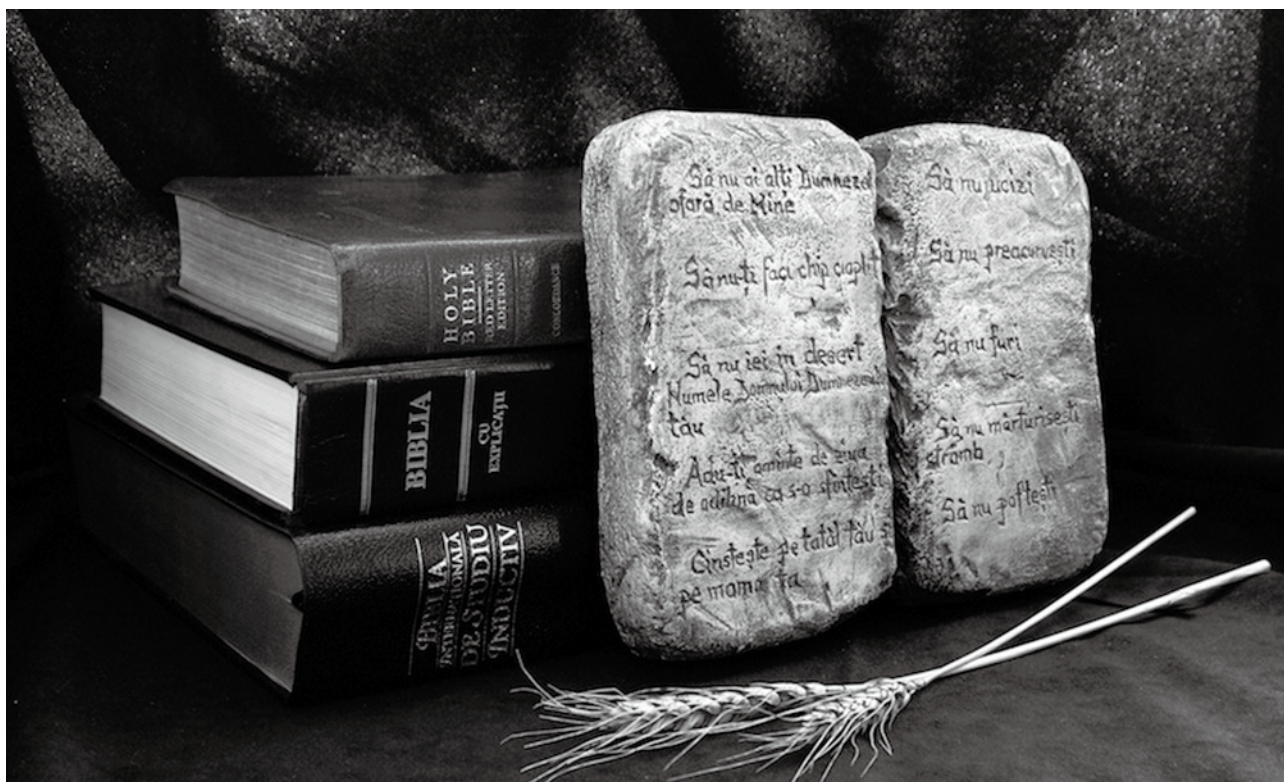 HOLY
BIBLE
RED LETTER
EDITION
CONCORDANCE
BIBLIA
CU
EXPLICAȚII
BIBLIA
INTERNAȚIONALĂ
DE STUDIU
INDUCTIV
Să nu ai alți Dumnezei
afară de Mine
Să nu-ți faci chip cioplit
Să nu iei în deșert
Numele Domnului Dumnezeului
tău
Adu-ți aminte de ziua
de odihnă ca s-o sfințești
Cinstește pe tatăl tău și
pe mama ta
Să nu ucizi
Să nu preacurvești
Să nu furi
Să nu mărturisești
strâmb
Să nu poftești